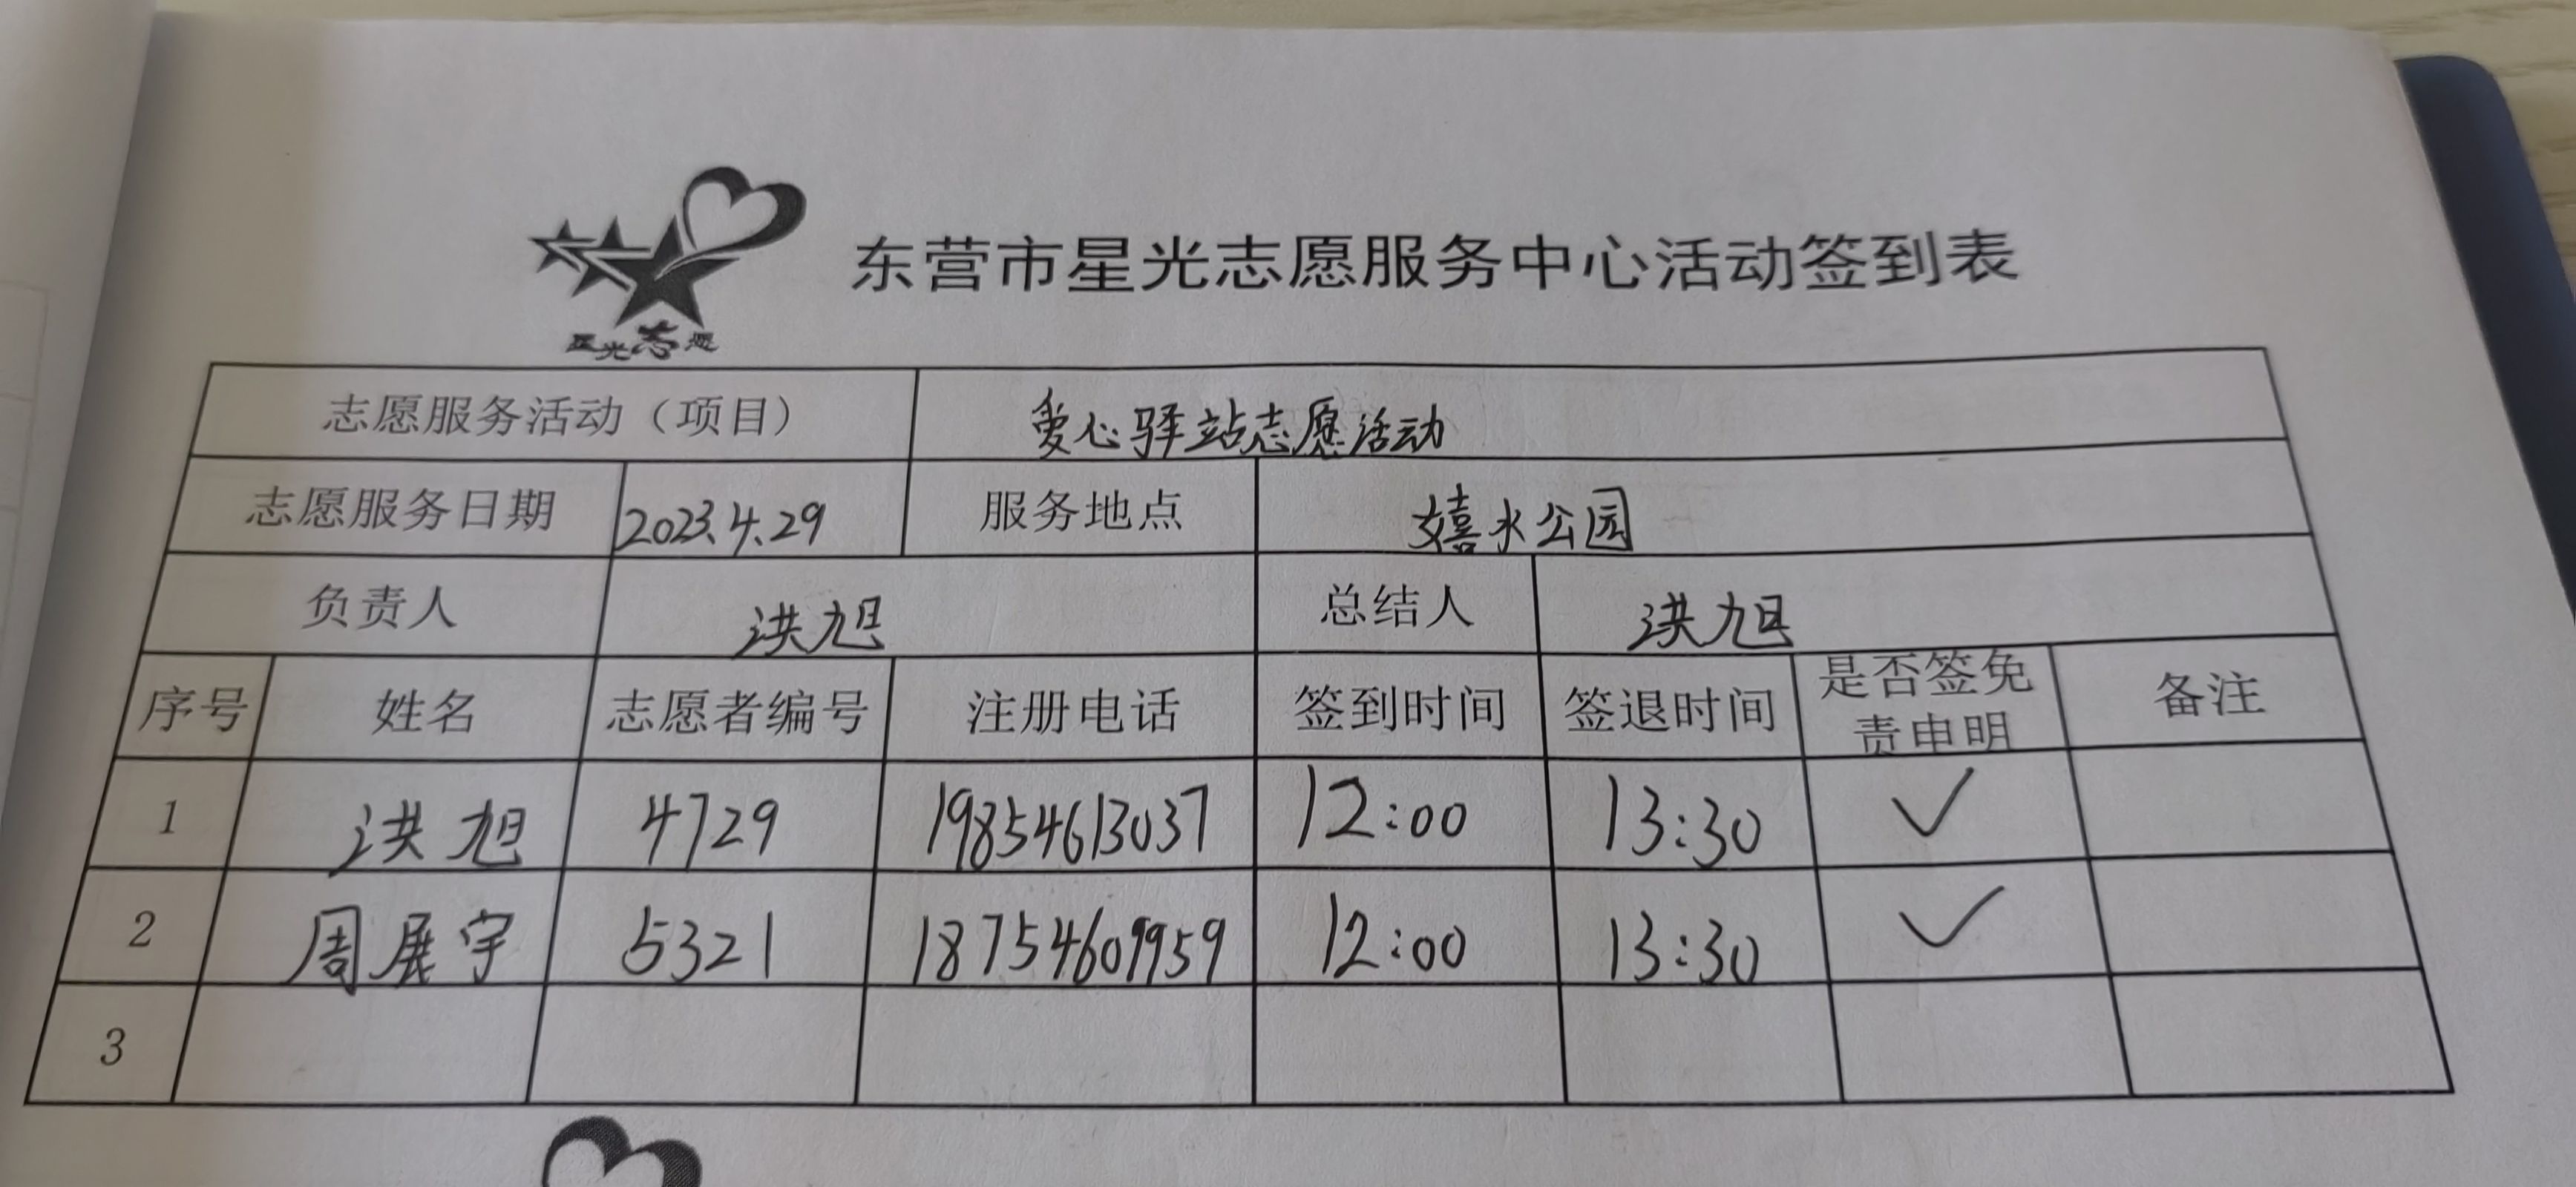 星光志愿
东营市星光志愿服务中心活动签到表
志愿服务活动（项目） 爱心驿站志愿活动
志愿服务日期 2023.4.29 服务地点 嬉水公园
负责人 洪旭 总结人 洪旭
序号 姓名 志愿者编号 注册电话 签到时间 签退时间 是否签免责申明 备注
1 洪旭 4729 19854613037 12:00 13:30 ✓
2 周展宇 5321 18754609959 12:00 13:30 ✓
3